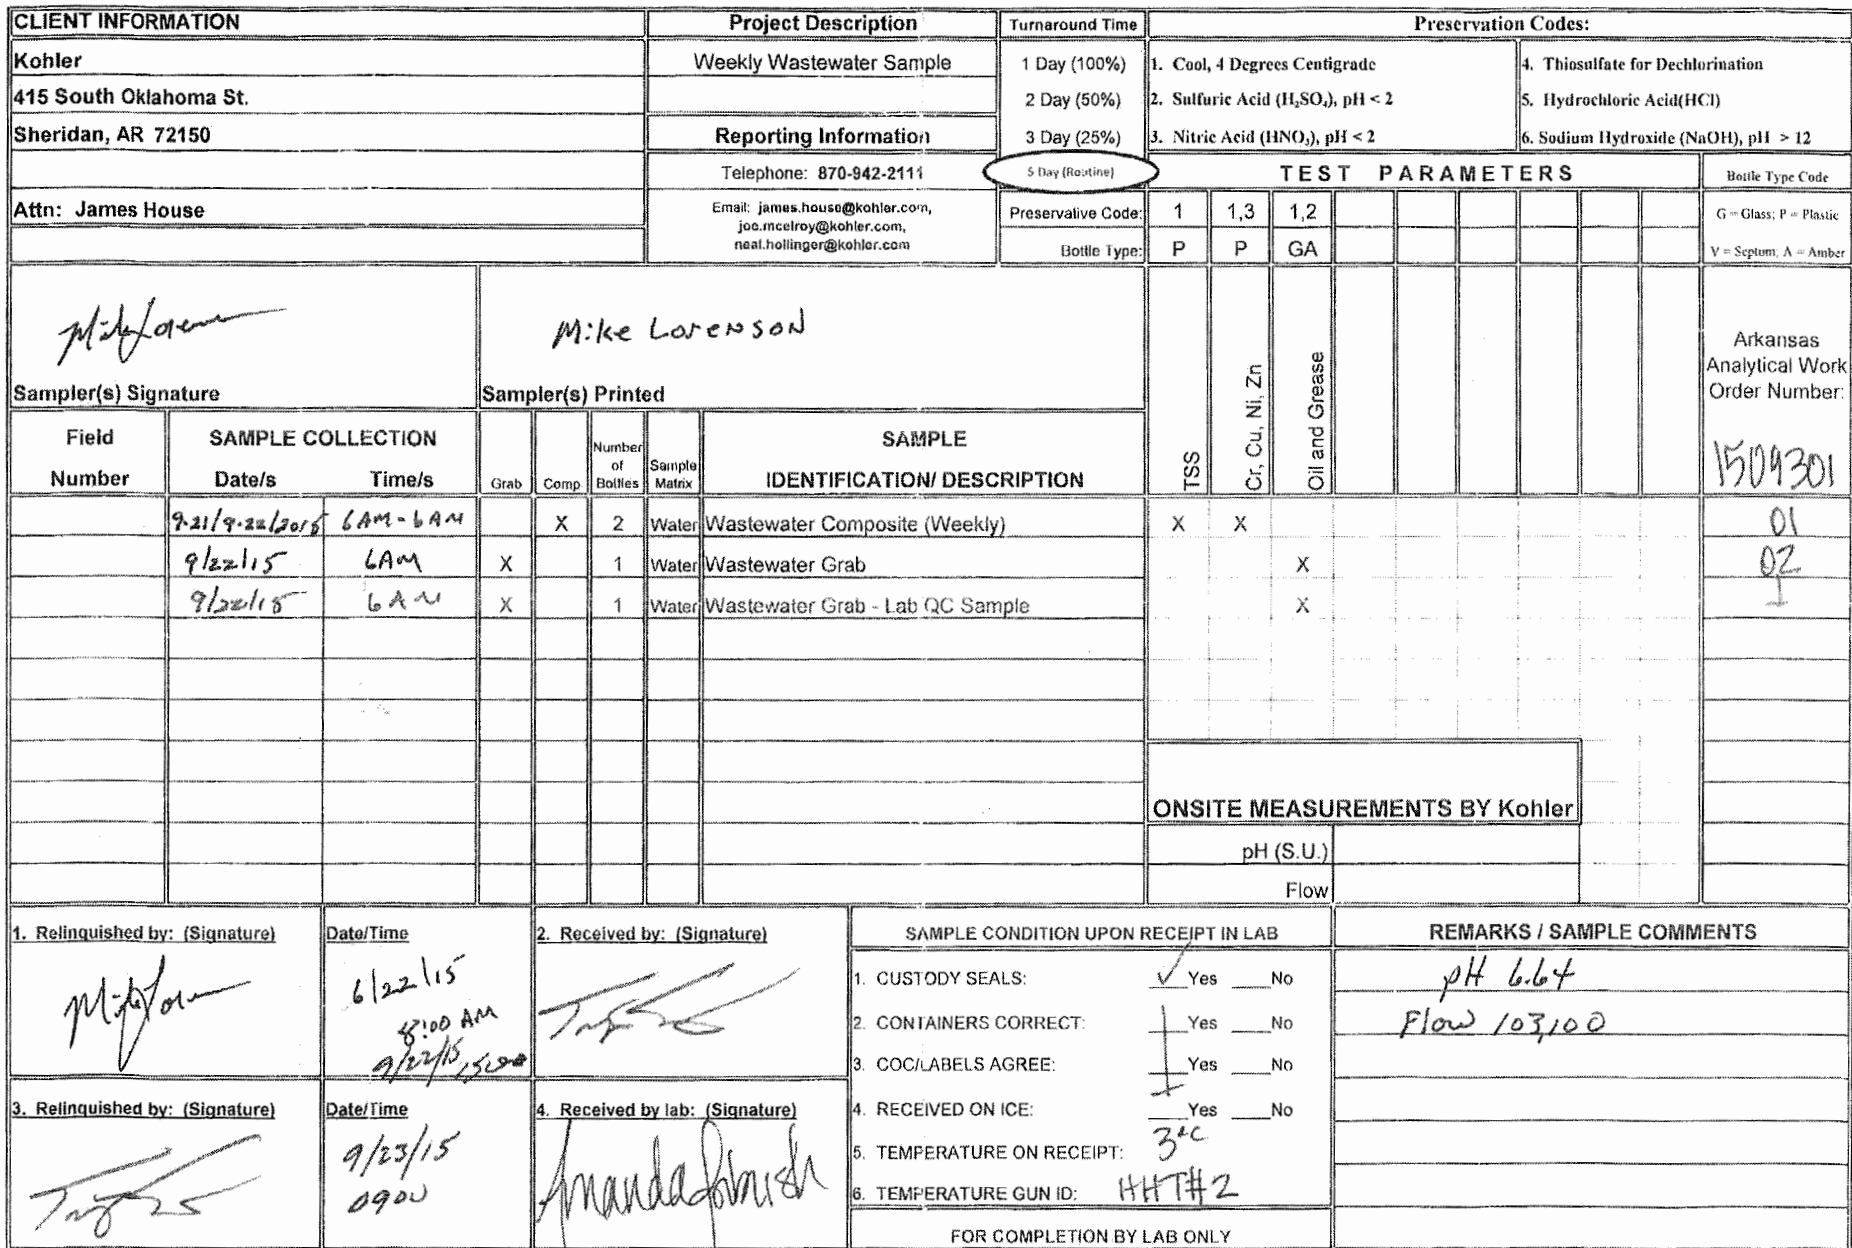 CLIENT INFORMATION
Kohler
415 South Oklahoma St.
Sheridan, AR 72150
Attn: James House
Project Description
Weekly Wastewater Sample
Reporting Information
Telephone: 870-942-2111
Email: james.house@kohler.com,
joe.mcelroy@kohler.com,
neal.hollinger@kohler.com
Turnaround Time
1 Day (100%)
2 Day (50%)
3 Day (25%)
5 Day (Routine)
Preservation Codes:
1. Cool, 4 Degrees Centigrade
2. Sulfuric Acid (H₂SO₄), pH < 2
3. Nitric Acid (HNO₃), pH < 2
4. Thiosulfate for Dechlorination
5. Hydrochloric Acid(HCl)
6. Sodium Hydroxide (NaOH), pH > 12
TEST PARAMETERS
Bottle Type Code
Preservative Code: 1 1,3 1,2
G = Glass; P = Plastic
Bottle Type: P P GA
V = Septum; A = Amber
Sampler(s) Signature
Mike Lorenson
Sampler(s) Printed
TSS
Cr, Cu, Ni, Zn
Oil and Grease
Arkansas
Analytical Work
Order Number:
1509301
Field
Number
SAMPLE COLLECTION
Date/s Time/s
Grab
Comp
Number
of
Bottles
Sample
Matrix
SAMPLE
IDENTIFICATION/ DESCRIPTION
9-21/9-22/2015 6AM-6AM X 2 Water Wastewater Composite (Weekly) X X 01
9/22/15 6AM X 1 Water Wastewater Grab X 02
9/22/15 6AM X 1 Water Wastewater Grab - Lab QC Sample X
ONSITE MEASUREMENTS BY Kohler
pH (S.U.)
Flow
1. Relinquished by: (Signature)
Date/Time
6/22/15
8:00 AM
9/22/15
2. Received by: (Signature)
3. Relinquished by: (Signature)
Date/Time
9/23/15
0900
4. Received by lab: (Signature)
SAMPLE CONDITION UPON RECEIPT IN LAB
1. CUSTODY SEALS: ✓ Yes ___No
2. CONTAINERS CORRECT: Yes ___No
3. COC/LABELS AGREE: Yes ___No
4. RECEIVED ON ICE: ___Yes ___No
5. TEMPERATURE ON RECEIPT: 3°C
6. TEMPERATURE GUN ID: HHT#2
FOR COMPLETION BY LAB ONLY
REMARKS / SAMPLE COMMENTS
pH 6.64
Flow 103,100